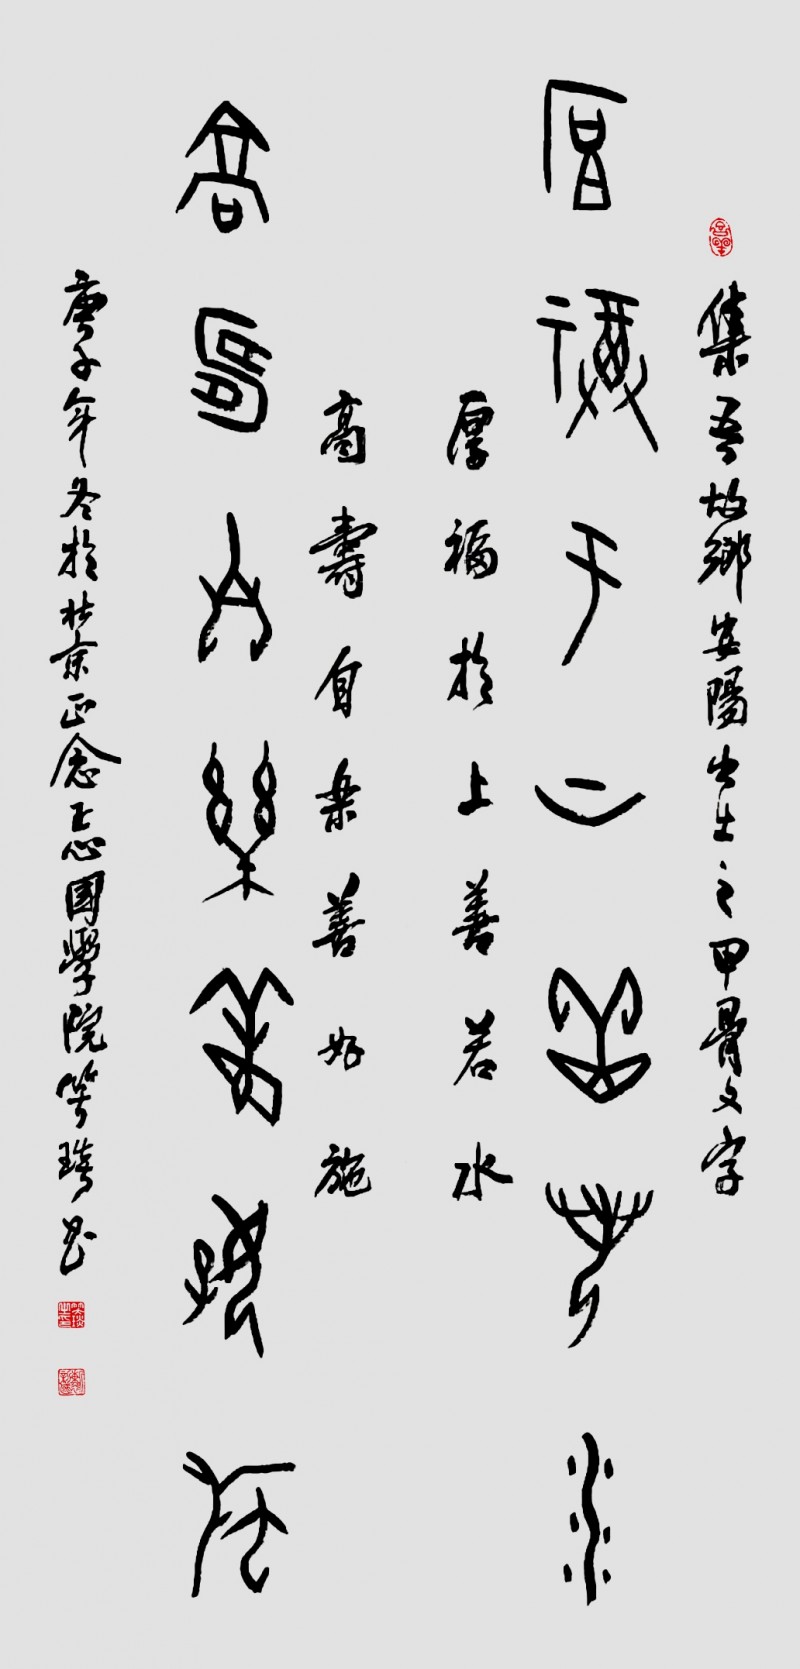 集吾故鄉安陽出土之甲骨文字
厚福于上善若水
厚福於上善若水
高壽自樂善好施
高壽自樂善好施
庚子年冬於北京正念正心國學院